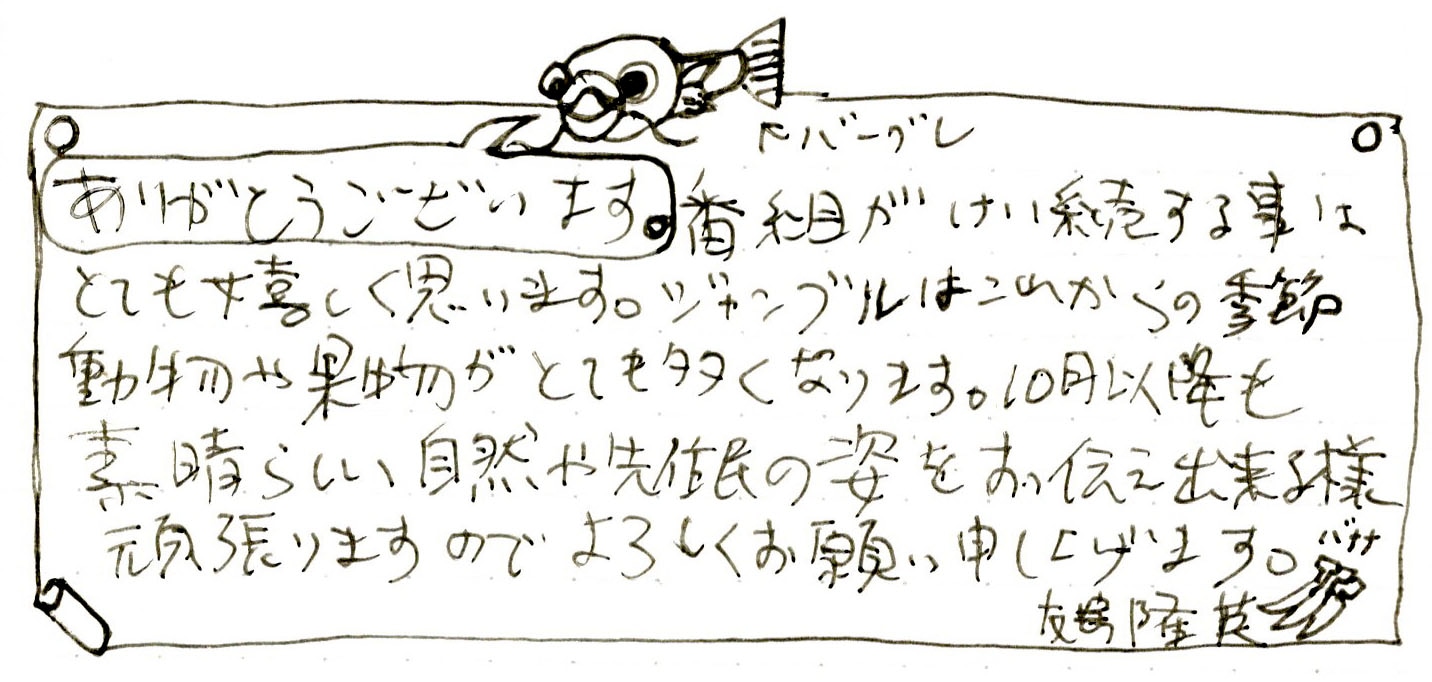 ドバーグレ
ありがとうございます。番組がけい続する事は
とても嬉しく思います。ジャングルはこれからの季節
動物や果物がとても多くなります。10月以降も
素晴らしい自然や先住民の姿をお伝え出来る様
頑張りますのでよろしくお願い申し上げます。
バナナ
友嶋隆英